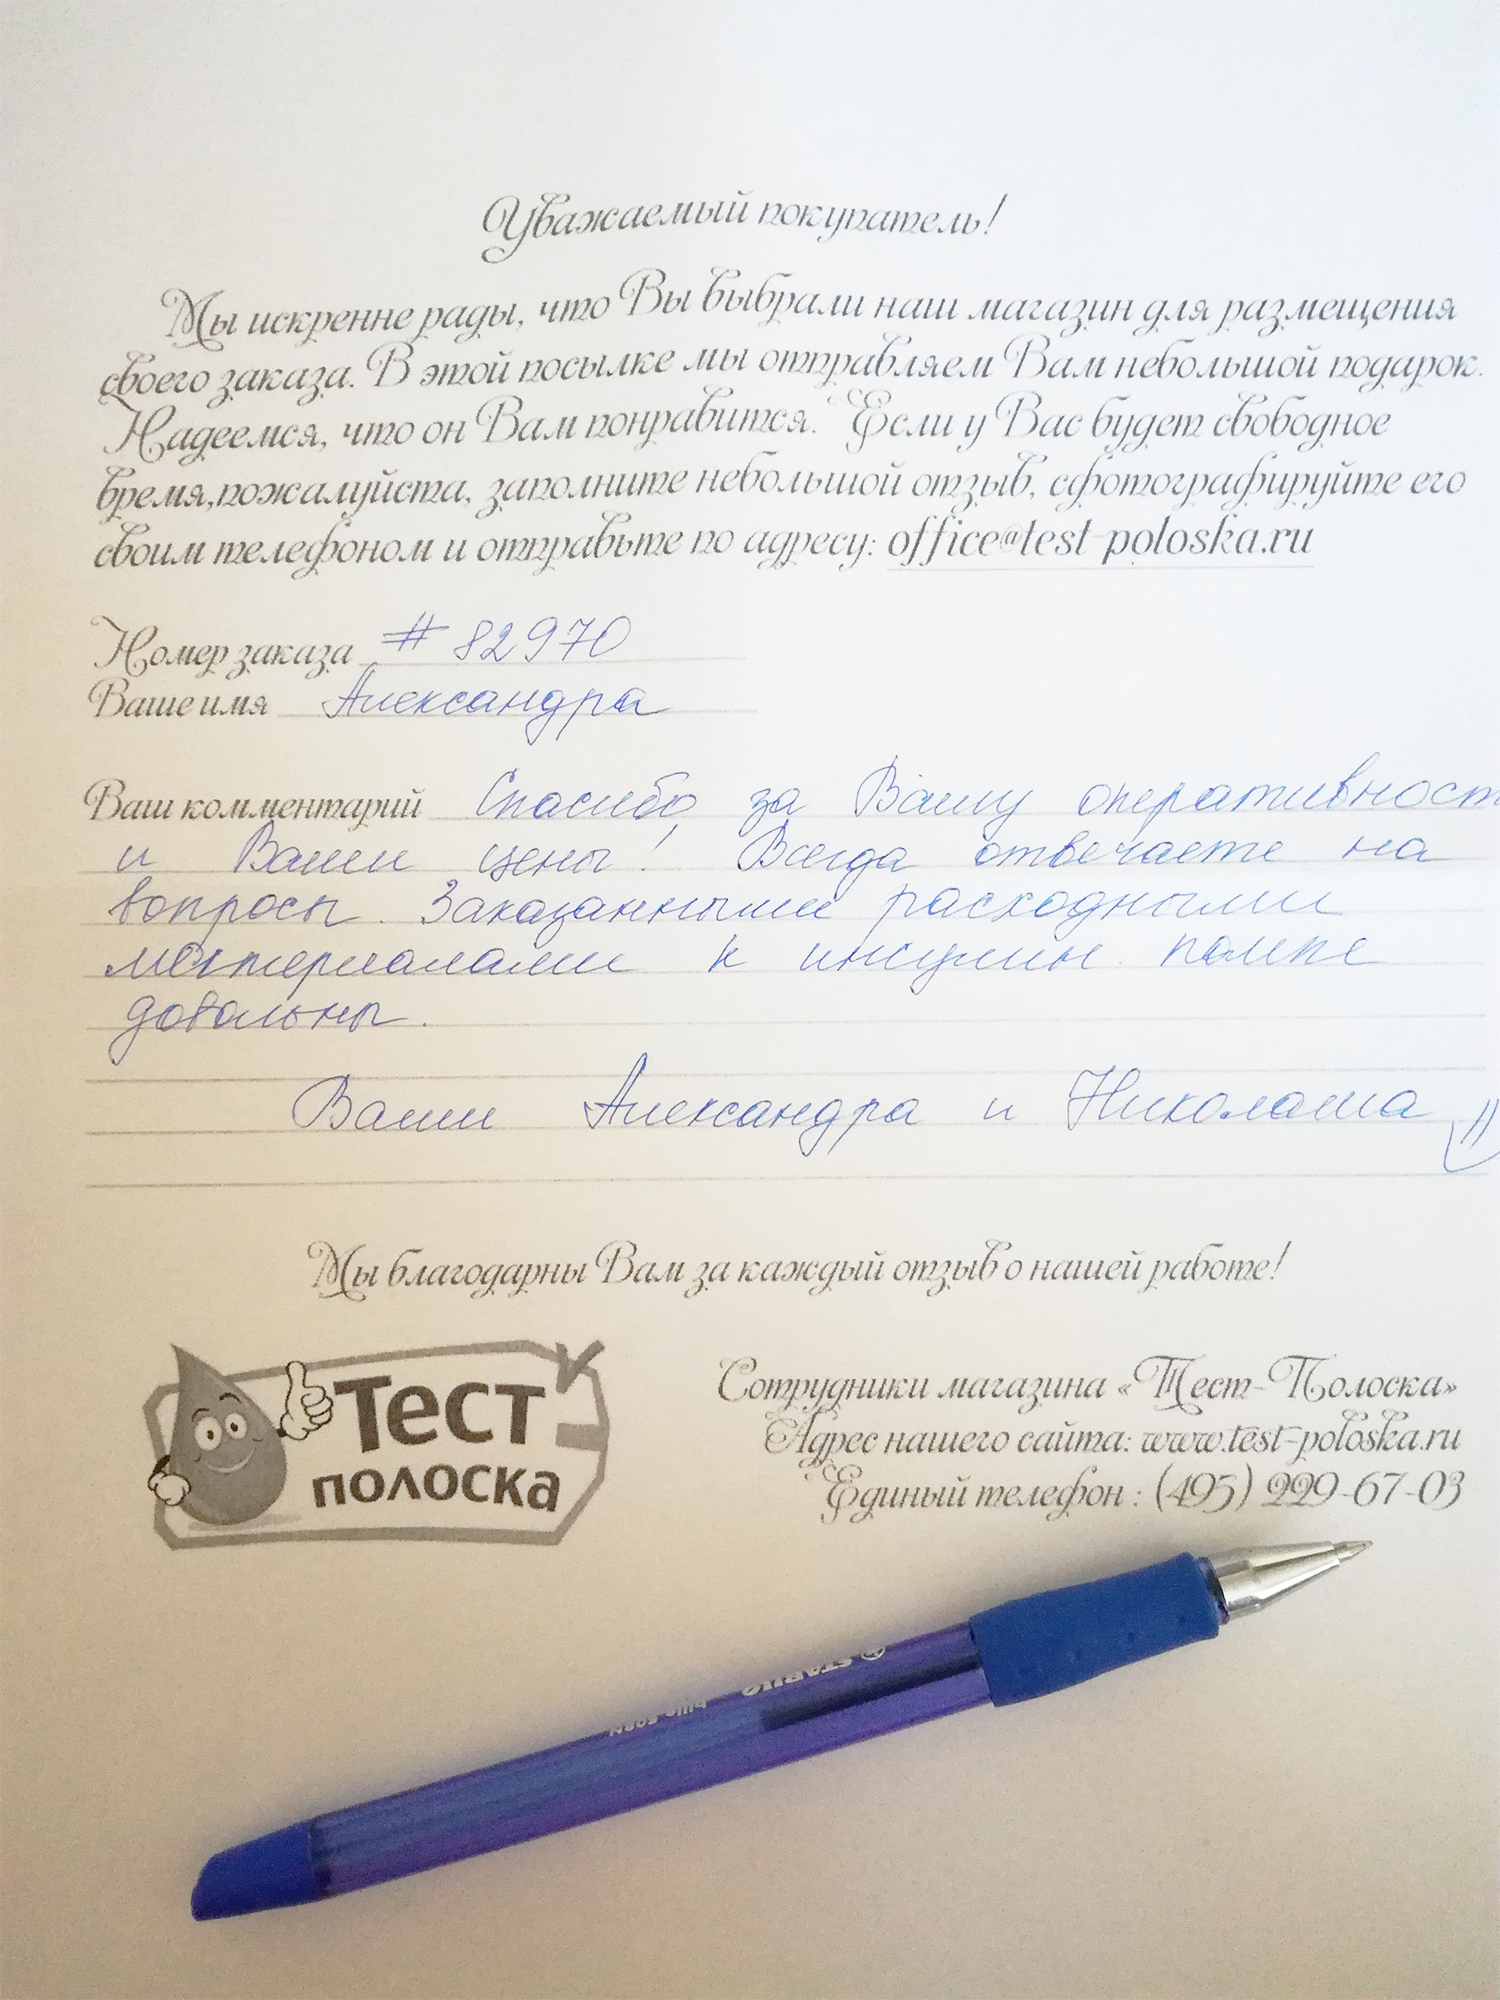 Уважаемый покупатель!
Мы искренне рады, что Вы выбрали наш магазин для размещения
своего заказа. В этой посылке мы отправляем Вам небольшой подарок.
Надеемся, что он Вам понравится. Если у Вас будет свободное
время,пожалуйста, заполните небольшой отзыв, сфотографируйте его
своим телефоном и отправьте по адресу: office@test-poloska.ru
Номер заказа # 82970
Ваше имя Александра
Ваш комментарий Спасибо за Вашу оперативност
и Ваши цены! Всегда отвечаете на
вопросы. Заказанными расходными
материалами к инсулин. помпе
довольны.
Ваши Александра и Николаша
Мы благодарны Вам за каждый отзыв о нашей работе!
Тест
полоска
Сотрудники магазина «Тест-Полоска»
Адрес нашего сайта: www.test-poloska.ru
Единый телефон : (495) 229-67-03
STABILO